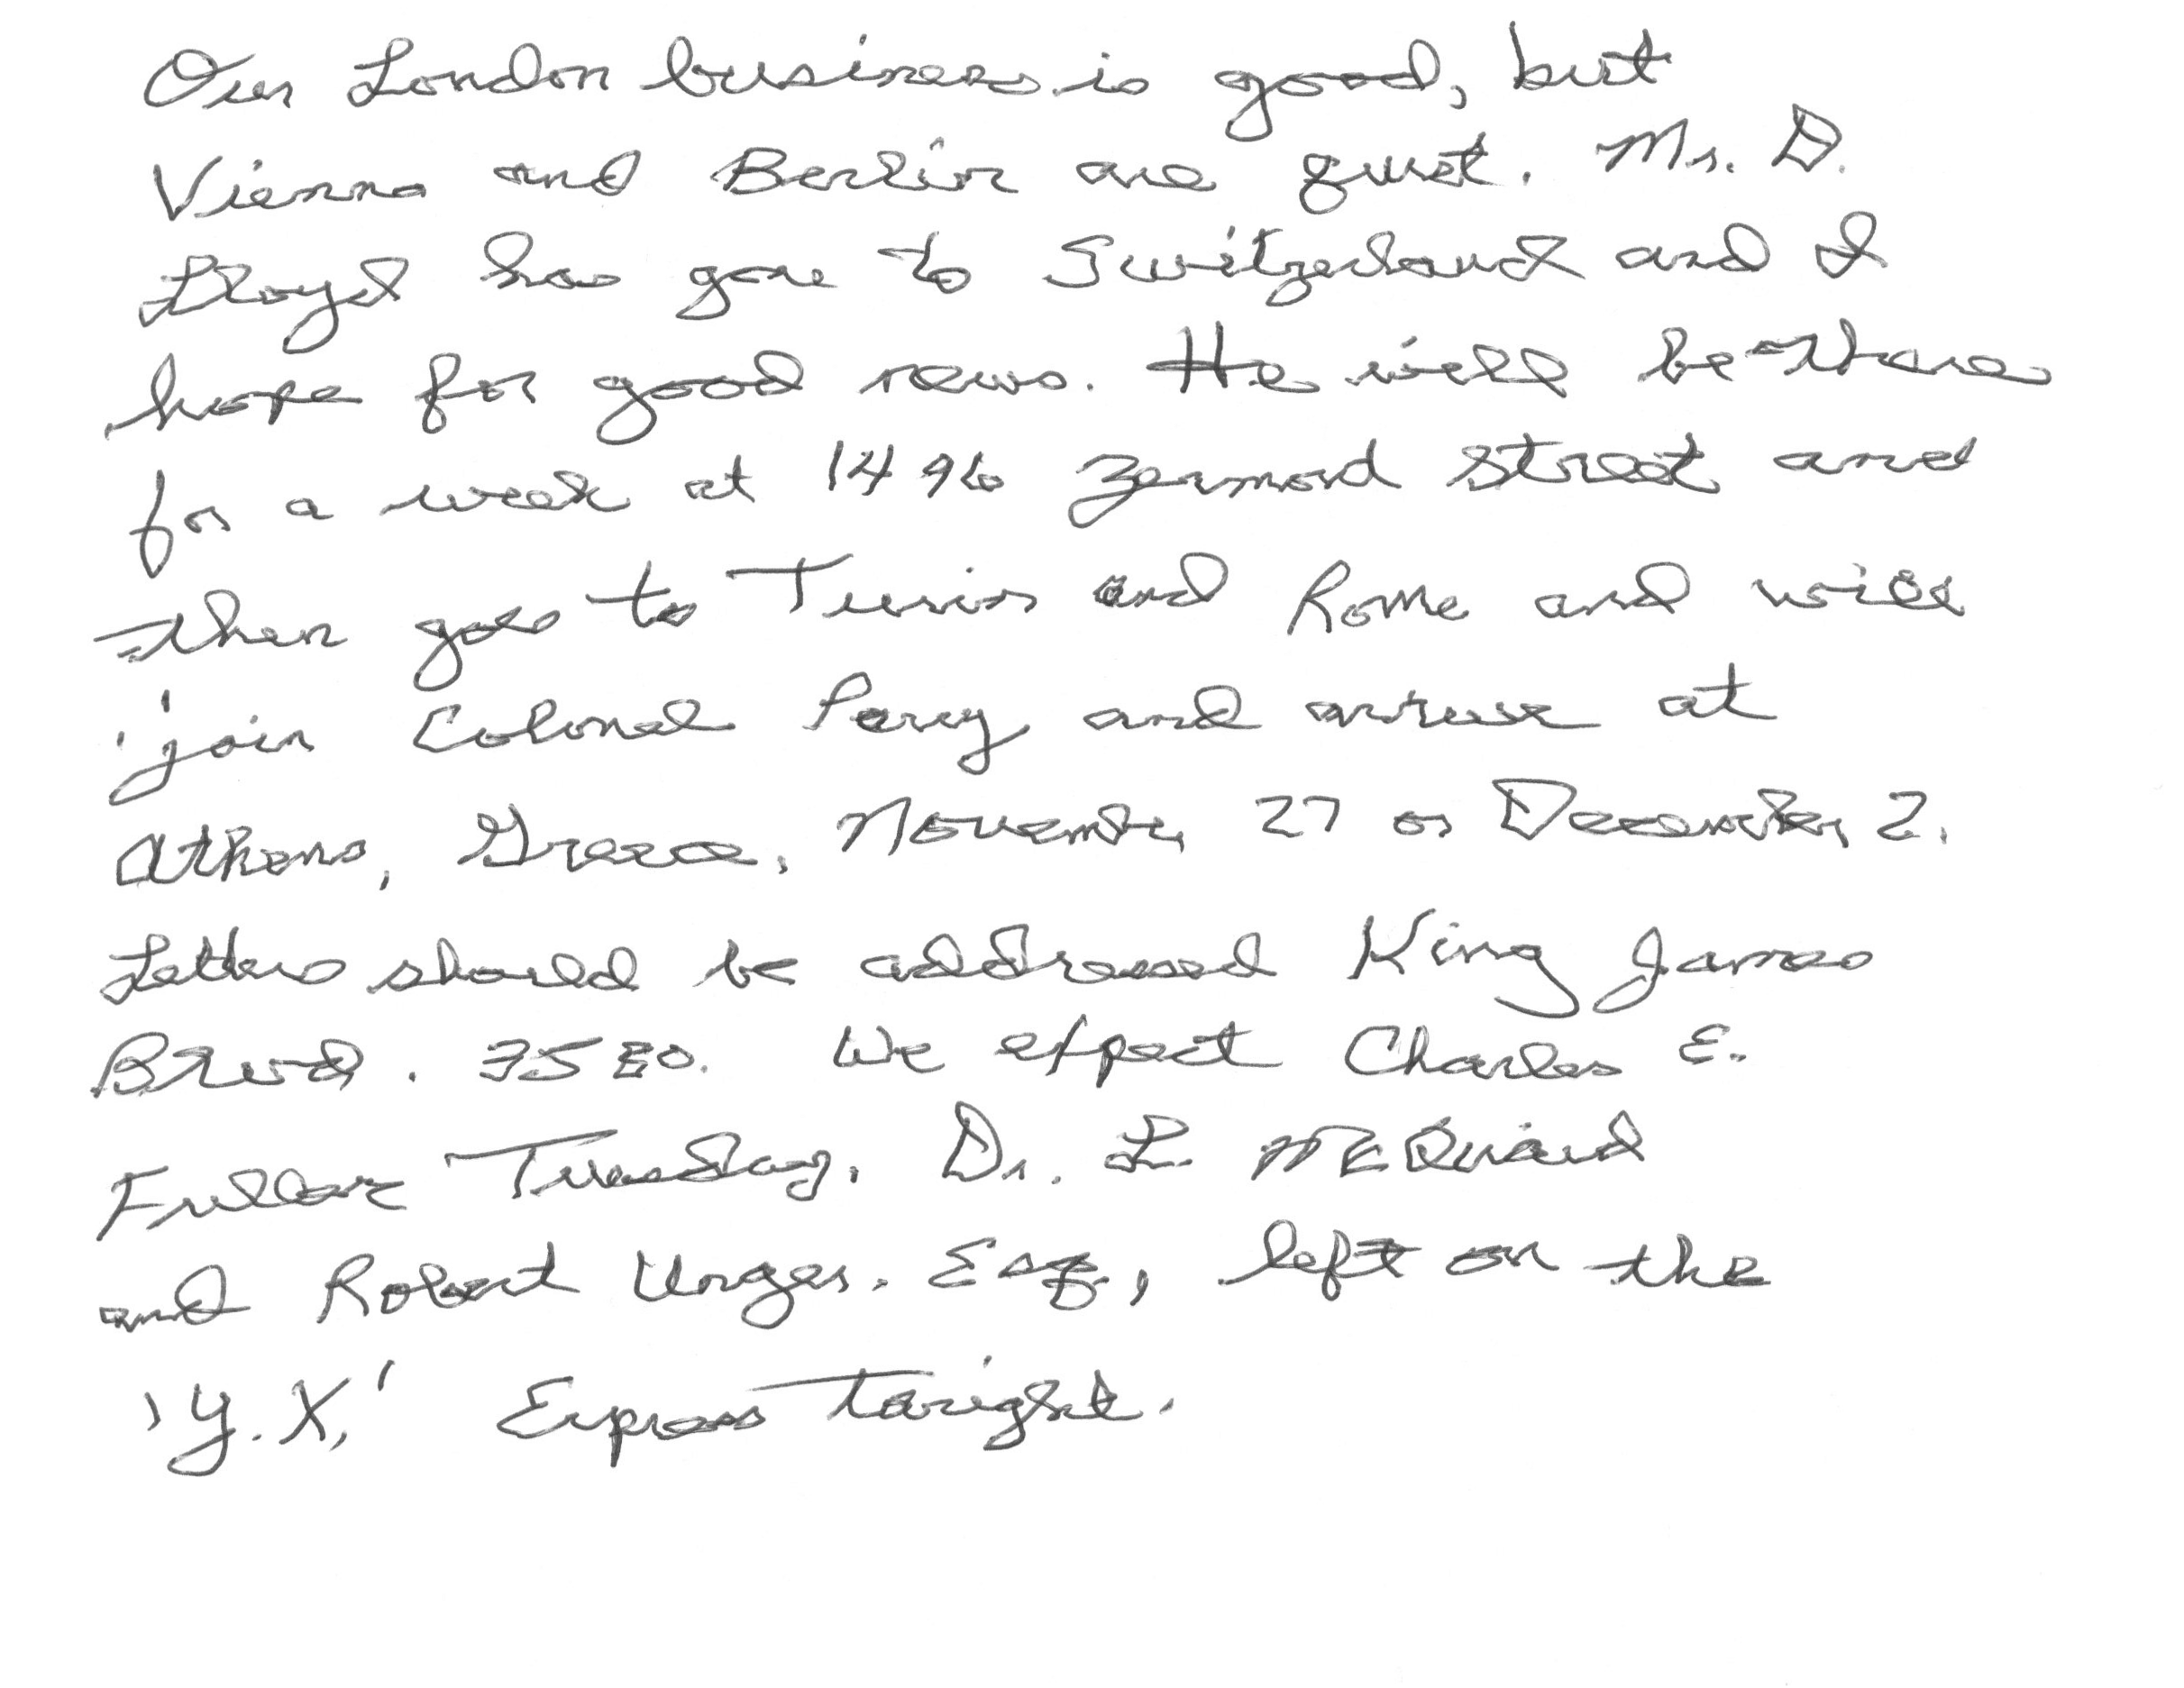 Our London business is good, but
Vienna and Berlin are quiet. Mr. D.
Lloyd has gone to Switzerland and I
hope for good news. He will be there
for a week at 1496 Zermord Street and
then goes to Turin and Rome and will
join Colonel Parry and arrive at
Athens, Greece, November 27 or December 2.
Letters should be addressed King James
Blvd. 3580. We expect Charles E.
Fuller Tuesday. Dr. L. McQuaid
and Robert Unger, Esq., left on the
'Y.X.' Express tonight.